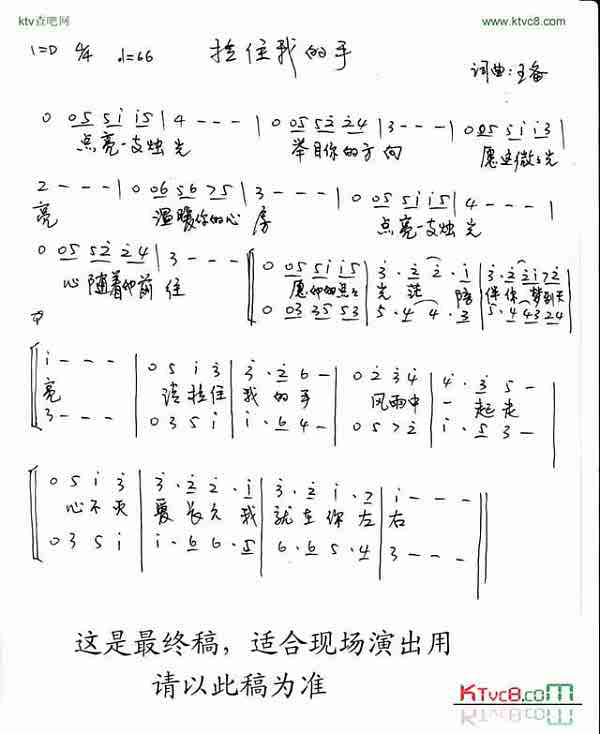 ktv查吧网 www.ktvc8.com
1=D 4/4 ♩=66 拉住我的手
词曲:王备
0 05 5i i5 | 4 - - - | 0 05 52 24 | 3 - - - | 0 05 5i i3 |
点亮一支烛光 举目你的方向 愿这微光
2 - - - | 0 06 56 75 | 3 - - - | 0 05 5i i5 | 4 - - - |
亮 温暖你的心房 点亮一支烛光
0 05 52 24 | 3 - - - | 0 05 5i i5 | 3·2 2·i | 3·2 2i 72
心随着 前往 愿 点点 光茫 陪 伴你 到天
0 03 35 53 | 5·4 4·3 | 5·4 43 24
i - - - | 0 5 i 3 | 3·2 6 - | 0 2 3 4 | 4·3 5 -
亮 请拉住我的手 风雨中一起走
3 - - - | 0 3 5 i | i·6 4 - | 0 5 7 2 | i·5 3 -
0 5 i 3 | 3·2 2·i | 3·2 i·7 | i - - -
心不灭 爱长久 我就在你左右
0 3 5 i | i·6 6·5 | 6·6 5·4 | 3 - - -
这是最终稿，适合现场演出用
请以此稿为准
KTvc8.com